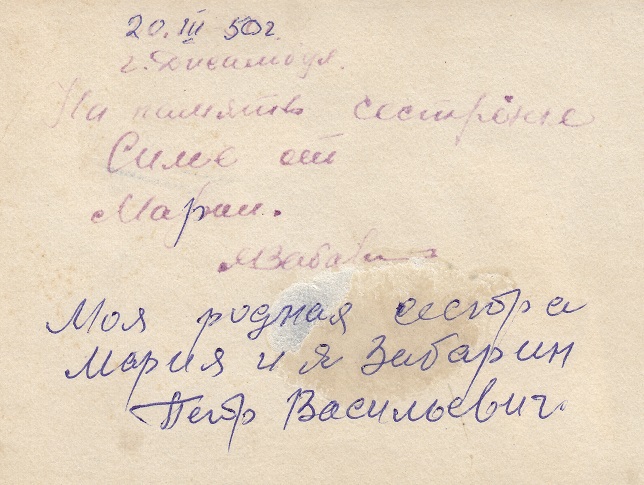 20. III 50г.
г. Джамбул.
На память сестрёнке
Симе от
Марии.
МЗабар
Моя родная сестра
Мария и я Забарин
Петр Васильевич.